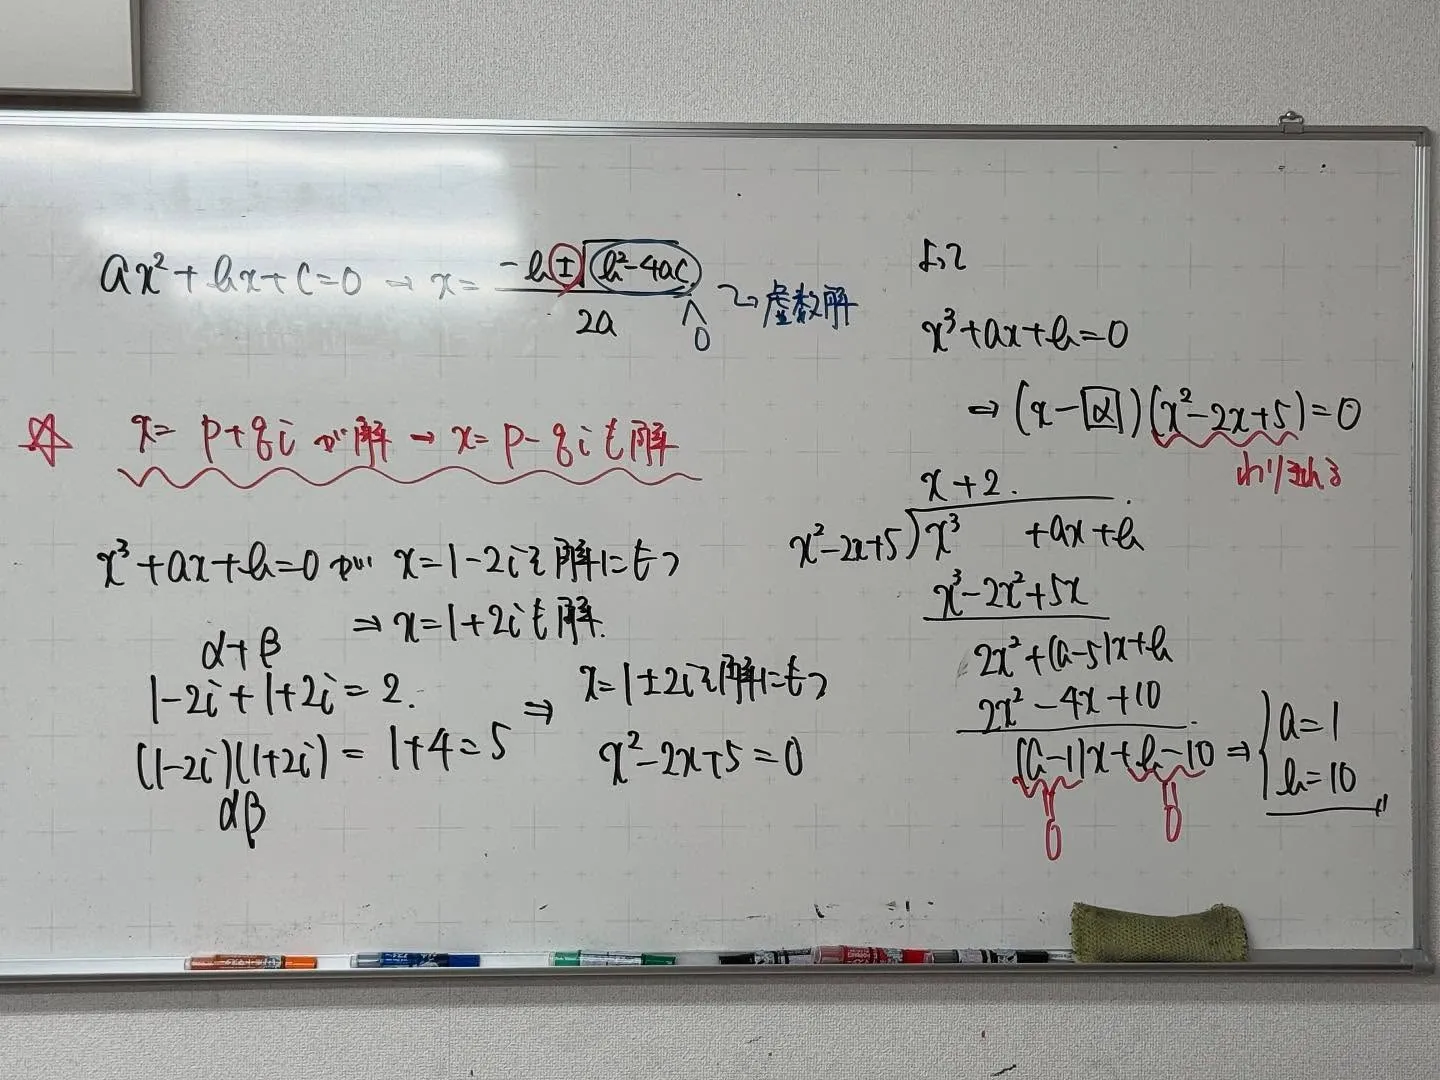 ax²+bx+c=0 → x= (-b±√(b²-4ac))/2a
∧
0
↝ 虚数解
☆ x= p+qi が解 → x= p-qi も解
x³+ax+b=0 が x=1-2iを解にもつ
⇒ x=1+2iも解.
α+β
1-2i+1+2i=2.
(1-2i)(1+2i)= 1+4=5
αβ
⇒ x=1±2iを解にもつ
x²-2x+5=0
よって
x³+ax+b=0
⇒ (x-α)(x²-2x+5)=0
わりきれる
x+2.
x²-2x+5)x³ +ax+b
x³-2x²+5x
2x²+(a-5)x+b
2x²-4x+10
(a-1)x+b-10 ⇒ { a=1
b=10
0 0